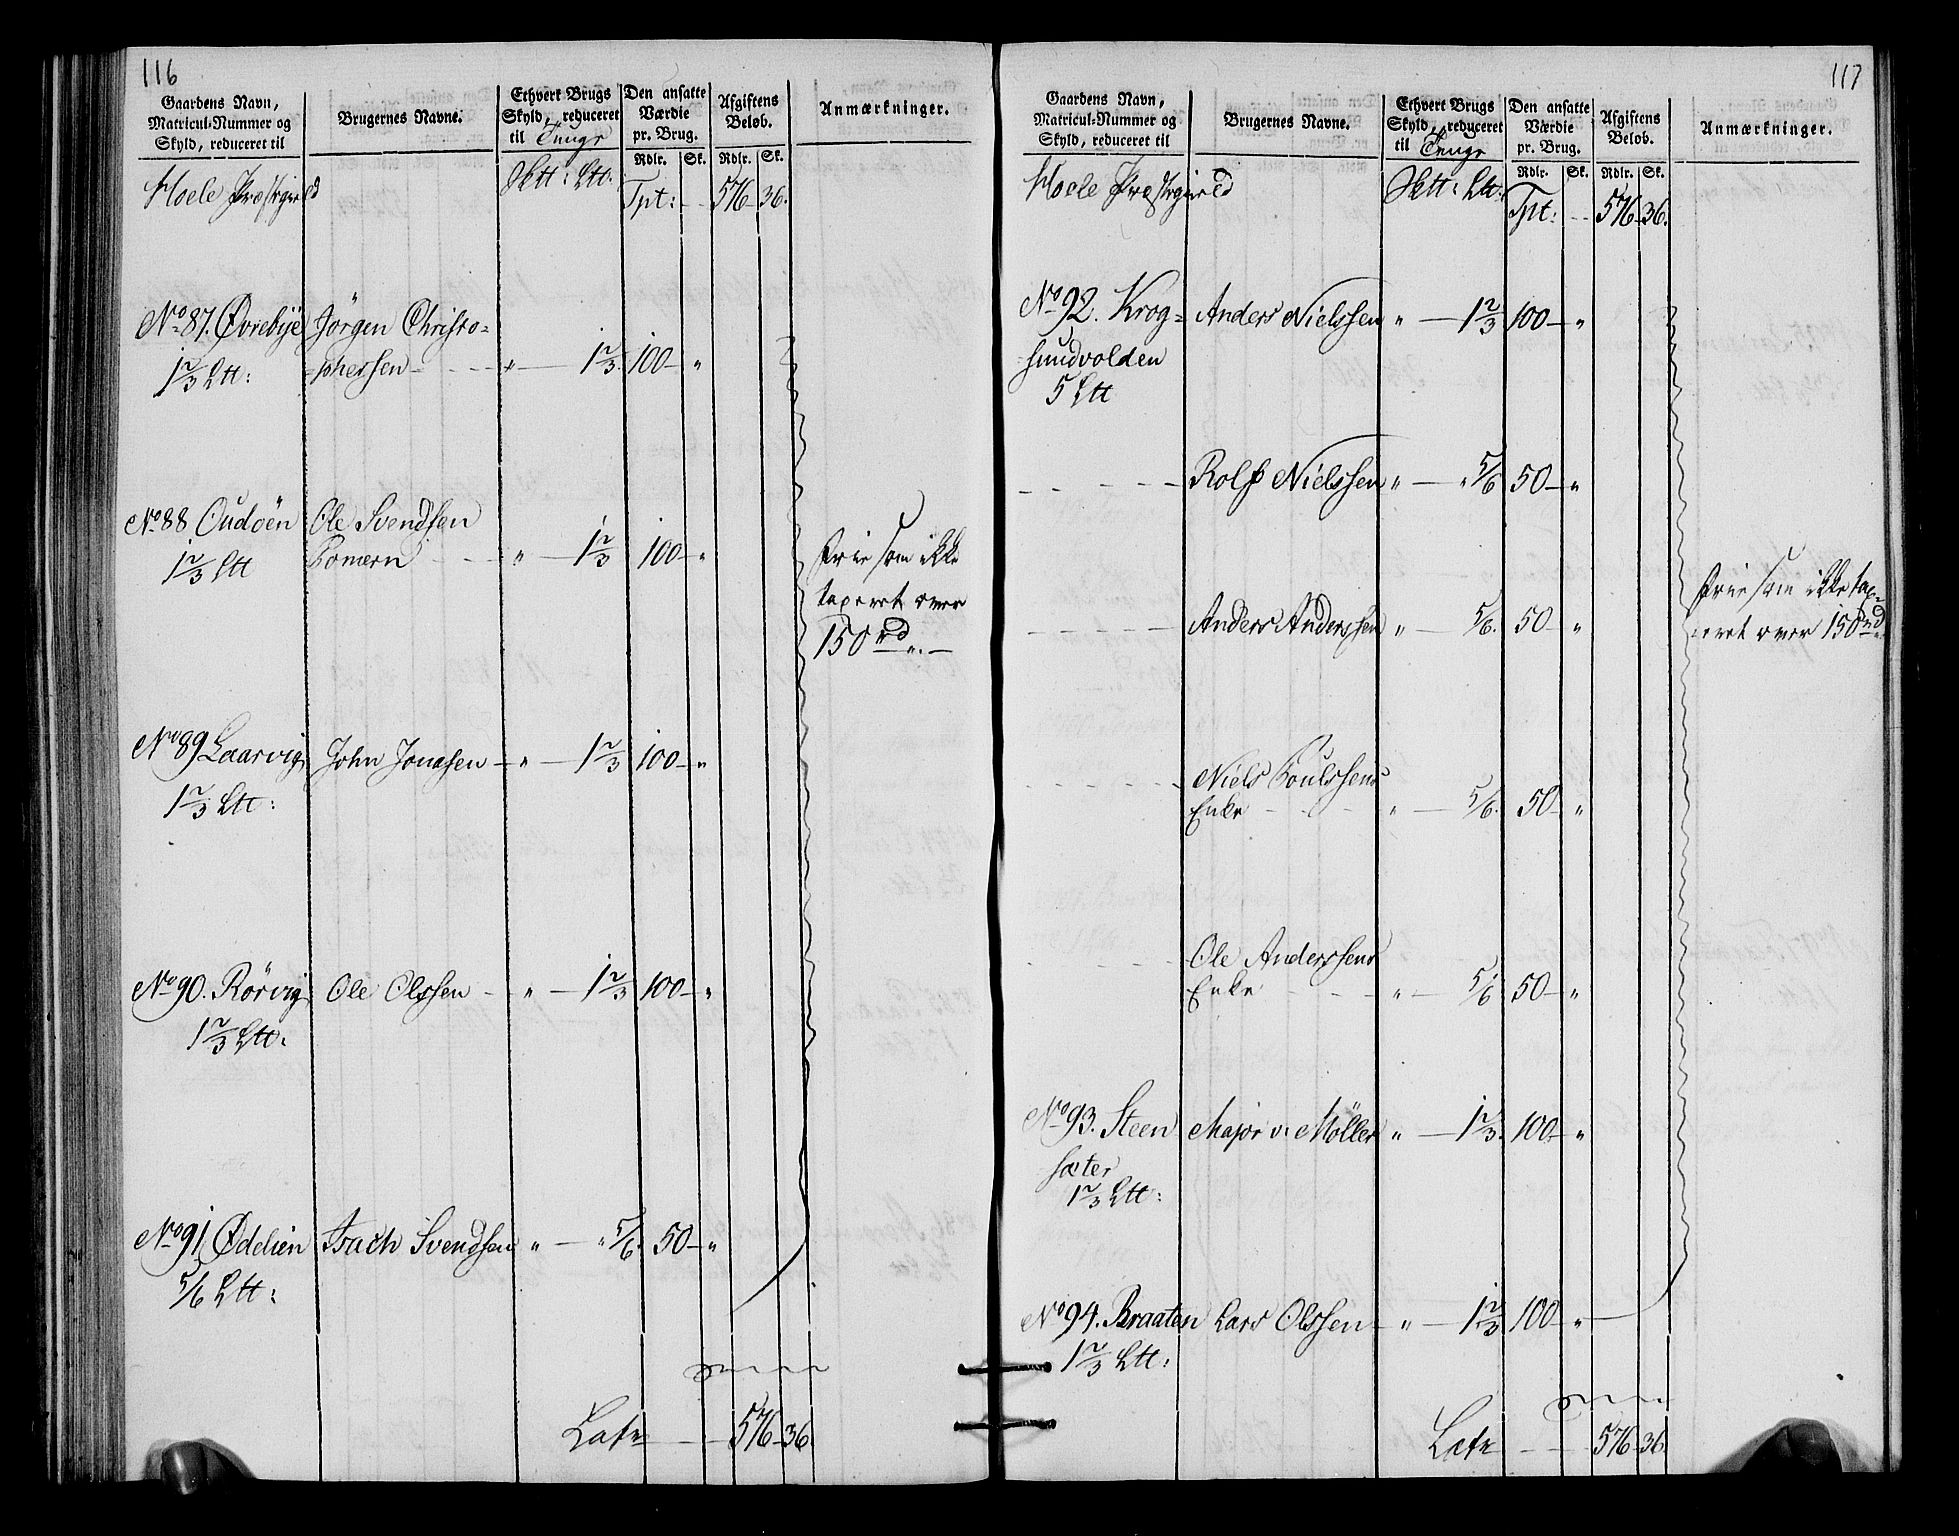 116
Gaardens Navn,
Matricul-Nummer og
Skyld, reduceret til
Brugernes Navne.
Ethvert Brugs
Skyld, reduceret
til Tunge
Den ansatte
Værdie
pr. Brug.
Rdlr. Sk.
Afgiftens
Beløb.
Rdlr. Sk.
Anmærkninger.
Hoele Præstegield
Sktt: Ltt:
Tpt: - - 576 - 36.
No 87. Øvrebÿe Jörgen Christo=
1 2/3 Ltt: =phersen - - - " — 1 2/3. 100 - "
No 88 Oudöen Ole Svendsen
1 2/3 Ltt Pomern - - " — 1 2/3 100 - "
frie som ikke
taxeret over
150 rd ". -
No 89 Laarvig John Jonasen - " — 1 2/3 100 - "
1 2/3 Ltt:
No 90. Rörvig Ole Olssen - " — 1 2/3 100 - "
1 2/3 Ltt.
No 91 Ødelien Isach Svendsen " — " 5/6. 50 - "
5/6 Ltt:
Late - - 576 - 36.
117
Gaardens Navn,
Matricul-Nummer og
Skyld, reduceret til
Brugernes Navne.
Ethvert Brugs
Skyld, reduceret
til Tunge
Den ansatte
Værdie
pr. Brug.
Rdlr. Sk.
Afgiftens
Beløb.
Rdlr. Sk.
Anmærkninger.
Hoele Præstegield
Sktt: Ltt:
Tpt: - - 576 - 36.
No 92. Krog= Anders Nielssen " — 1 2/3 100 - "
sundvolden
5 Ltt
- - - - - Rolf Nielssen " — " 5/6 50 - "
- - - - - Anders Anderssen " — 5/6. 50 - "
frie som ikke tax=
=eret over 150 rd ".
- - - - - Niels Poulssens
Enke - - - " — 5/6. 50 - "
- - - - - Ole Anderssens
Enke - - - " — 5/6 50 - "
No 93. Steen Major v. Möller " — 1 2/3. 100 - "
sæter
1 2/3 Ltt:
No 94. Braaten Lars Olssen - " — 1 2/3 100 - "
1 2/3 Ltt:
Late - - 576 - 36.